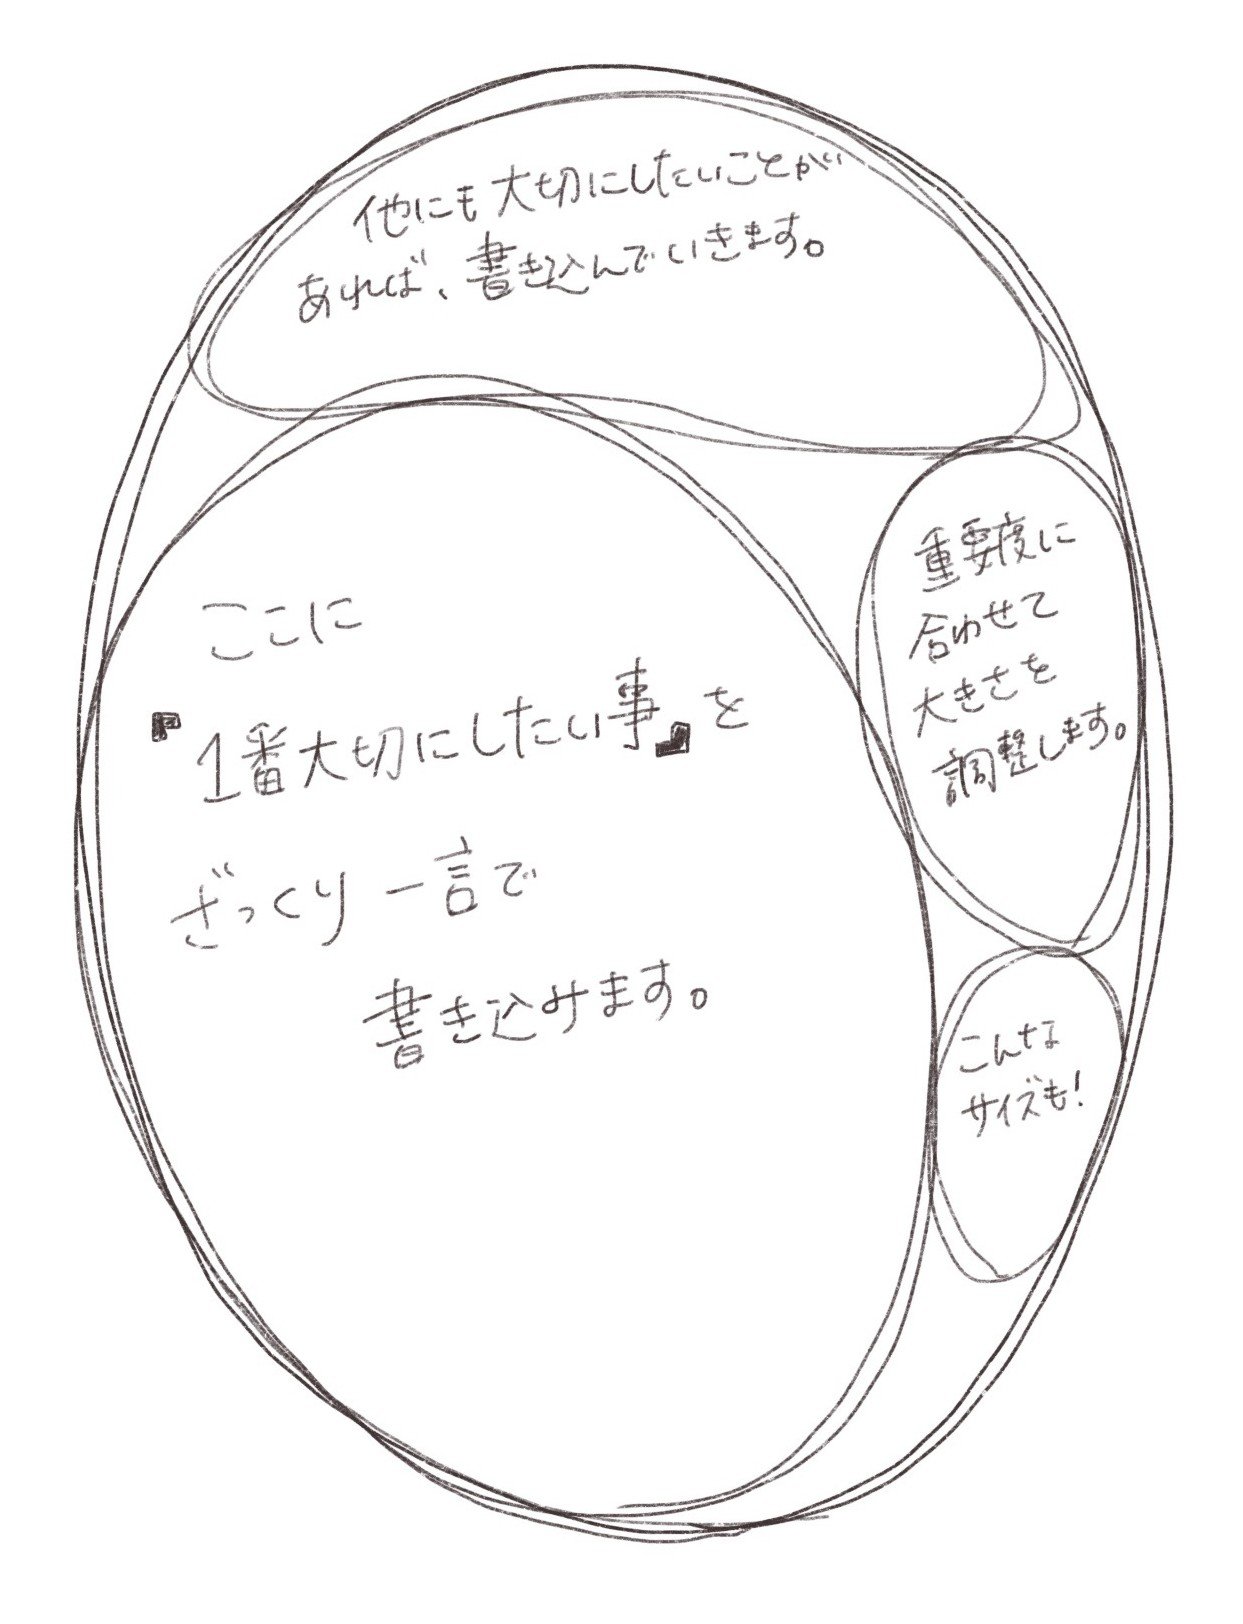 他にも大切にしたいことが
あれば、書き込んでいきます。
ここに
『1番大切にしたい事』を
ざっくり一言で
書き込みます。
重要度に
合わせて
大きさを
調整します。
こんな
サイズも!